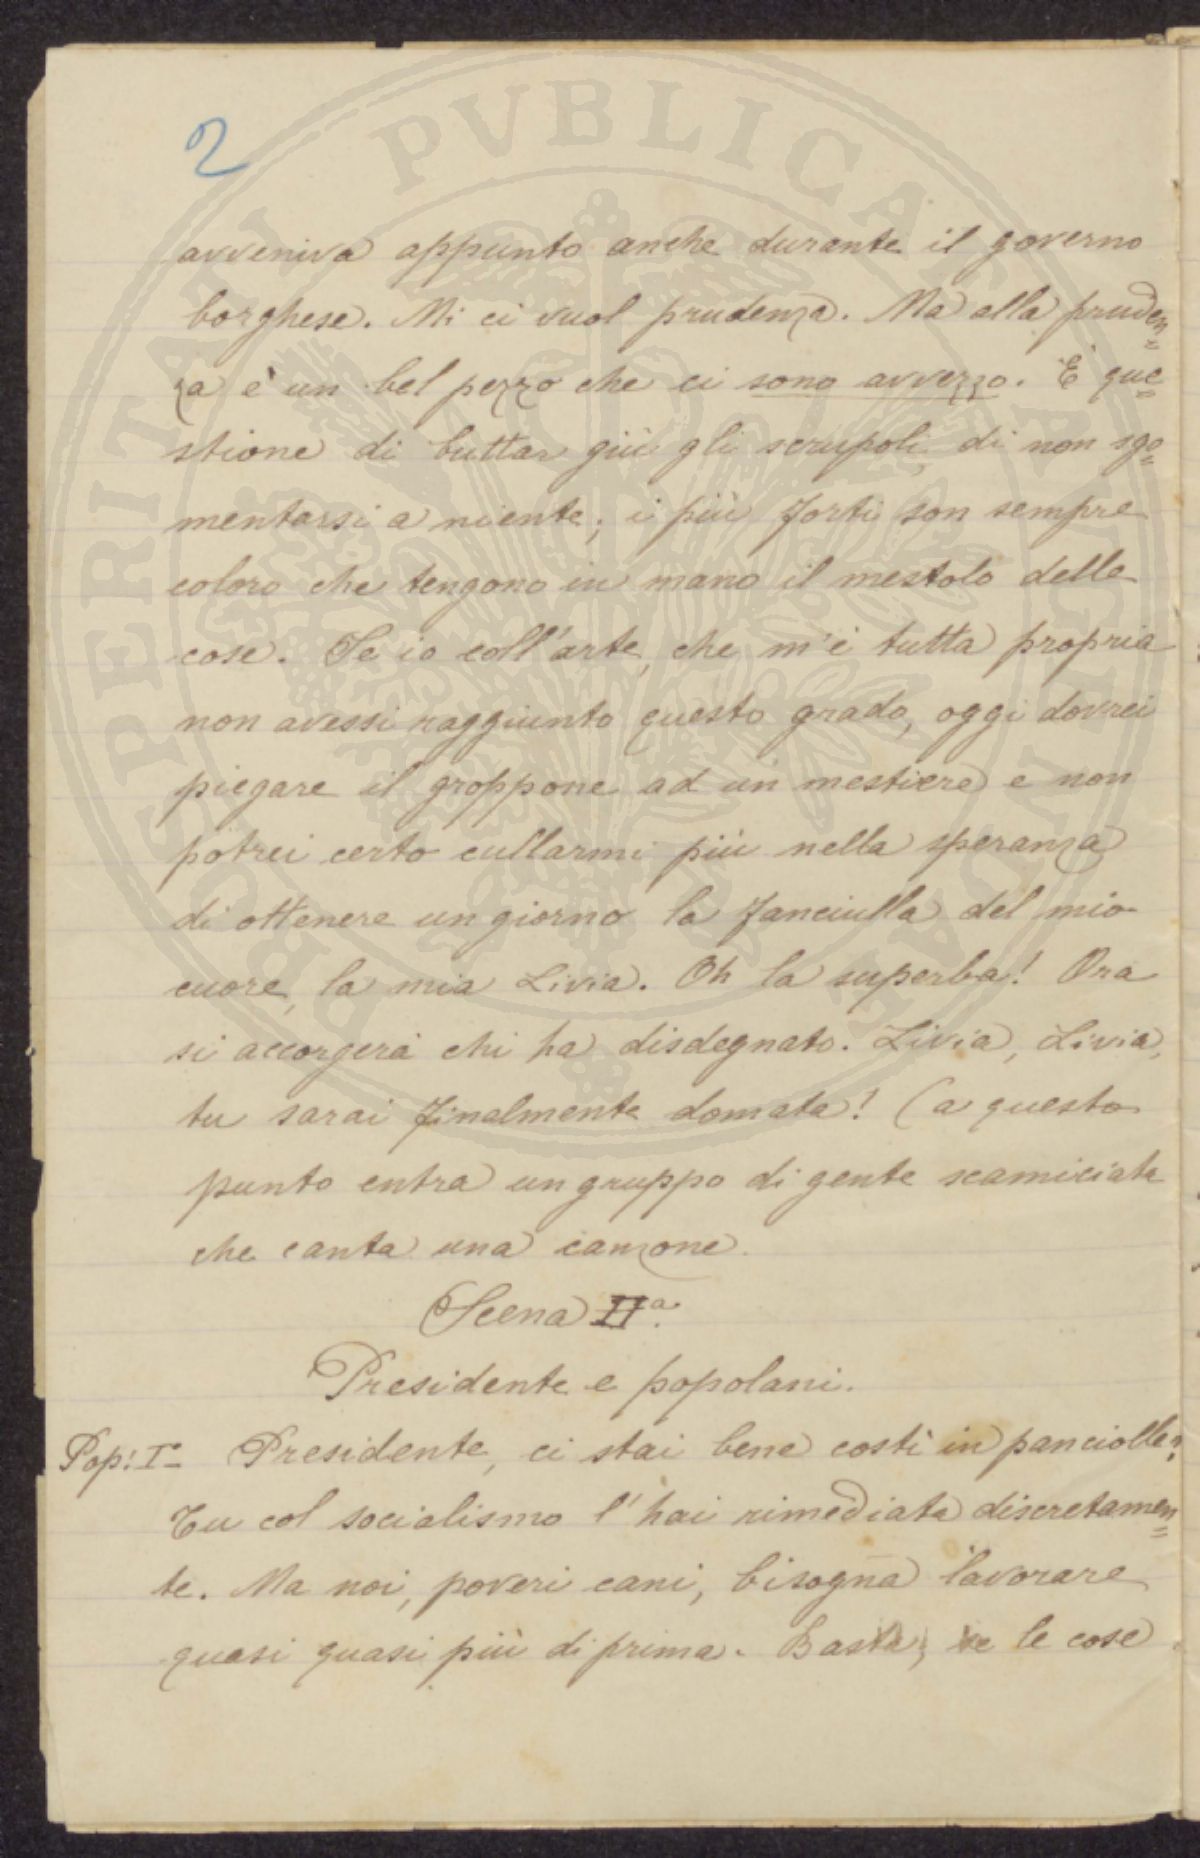 2
avveniva appunto anche durante il governo
borghese. Mi ci vuol prudenza. Ma alla pruden=
za è un bel pezzo che ci sono avvezzo. È que=
stione di buttar giù gli scrupoli, di non sgo=
mentarsi a niente; i più forti son sempre
coloro che tengono in mano il mestolo delle
cose. Se io coll'arte, che m'è tutta propria
non avessi raggiunto questo grado, oggi dovrei
piegare il groppone ad un mestiere e non
potrei certo cullarmi più nella speranza
di ottenere un giorno la fanciulla del mio
cuore, la mia Livia. Oh la superba! Ora
si accorgerà chi ha disdegnato. Livia, Livia,
tu sarai finalmente domata! (a questo
punto entra un gruppo di gente scamiciata
che canta una canzone.
Scena IIª.
Presidente e popolani.
Pop: I° - Presidente, ci stai bene costì in panciolle?
Tu col socialismo l'hai rimediata discretamen=
te. Ma noi, poveri cani, bisogna lavorare
quasi quasi più di prima. Basta, se le cose
PVBLICAE
PERITAN